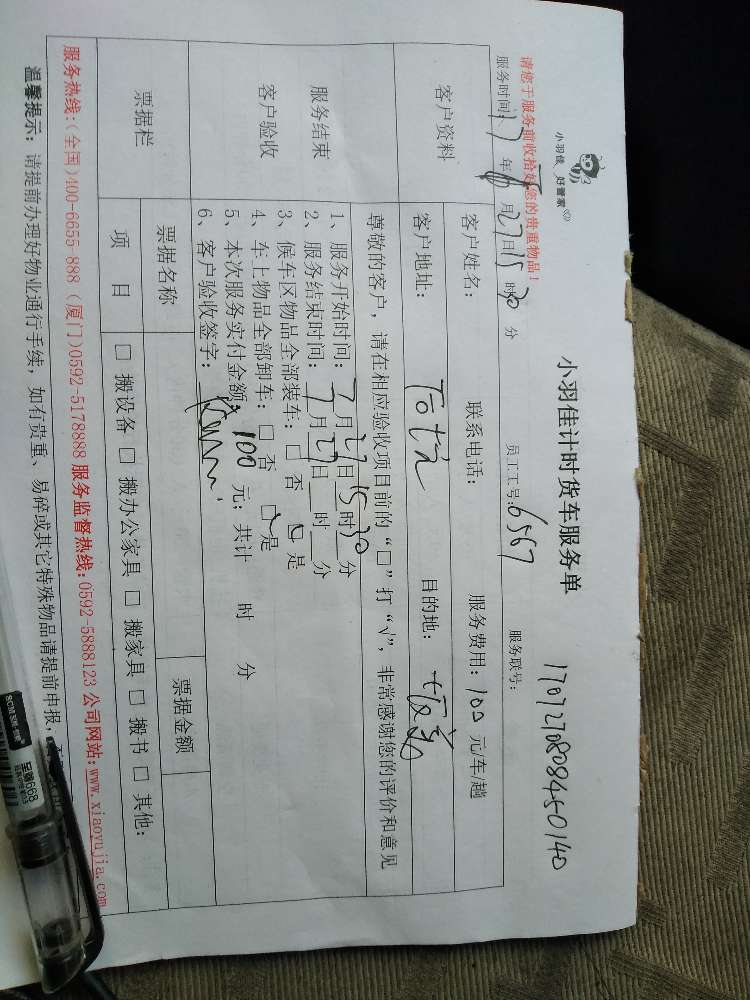 小羽佳 好管家
小羽佳计时货车服务单
1707270808450140
请您于服务前收拾好您的贵重物品！
服务时间: 17 年 月 27 日 15 时 30 分 员工工号: 6567 服务联号:
客户资料
客户姓名: 联系电话: 服务费用: 100 元/车/趟
客户地址: 目的地:
尊敬的客户，请在相应验收项目前的“□”打“√”，非常感谢您的评价和意见
服务结束
客户验收
1、服务开始时间: 7 月 27 日 15 时 30 分
2、服务结束时间: 7 月 27 日 时 分
3、候车区物品全部装车: □ 否 □ 是
4、车上物品全部卸车: □ 否 □ 是
5、本次服务实付金额: 100 元; 共计 时 分
6、客户验收签字:
票据栏
票据名称 票据金额
项 目 □ 搬设备 □ 搬办公家具 □ 搬家具 □ 搬书 □ 其他:
服务热线:(全国)400-6655-888 (厦门)0592-5178888 服务监督热线:0592-5888123 公司网站:www.xiaoyujia.com
温馨提示: 请提前办理好物业通行手续, 如有贵重、易碎或其它特殊物品请提前申报,
SCM
668